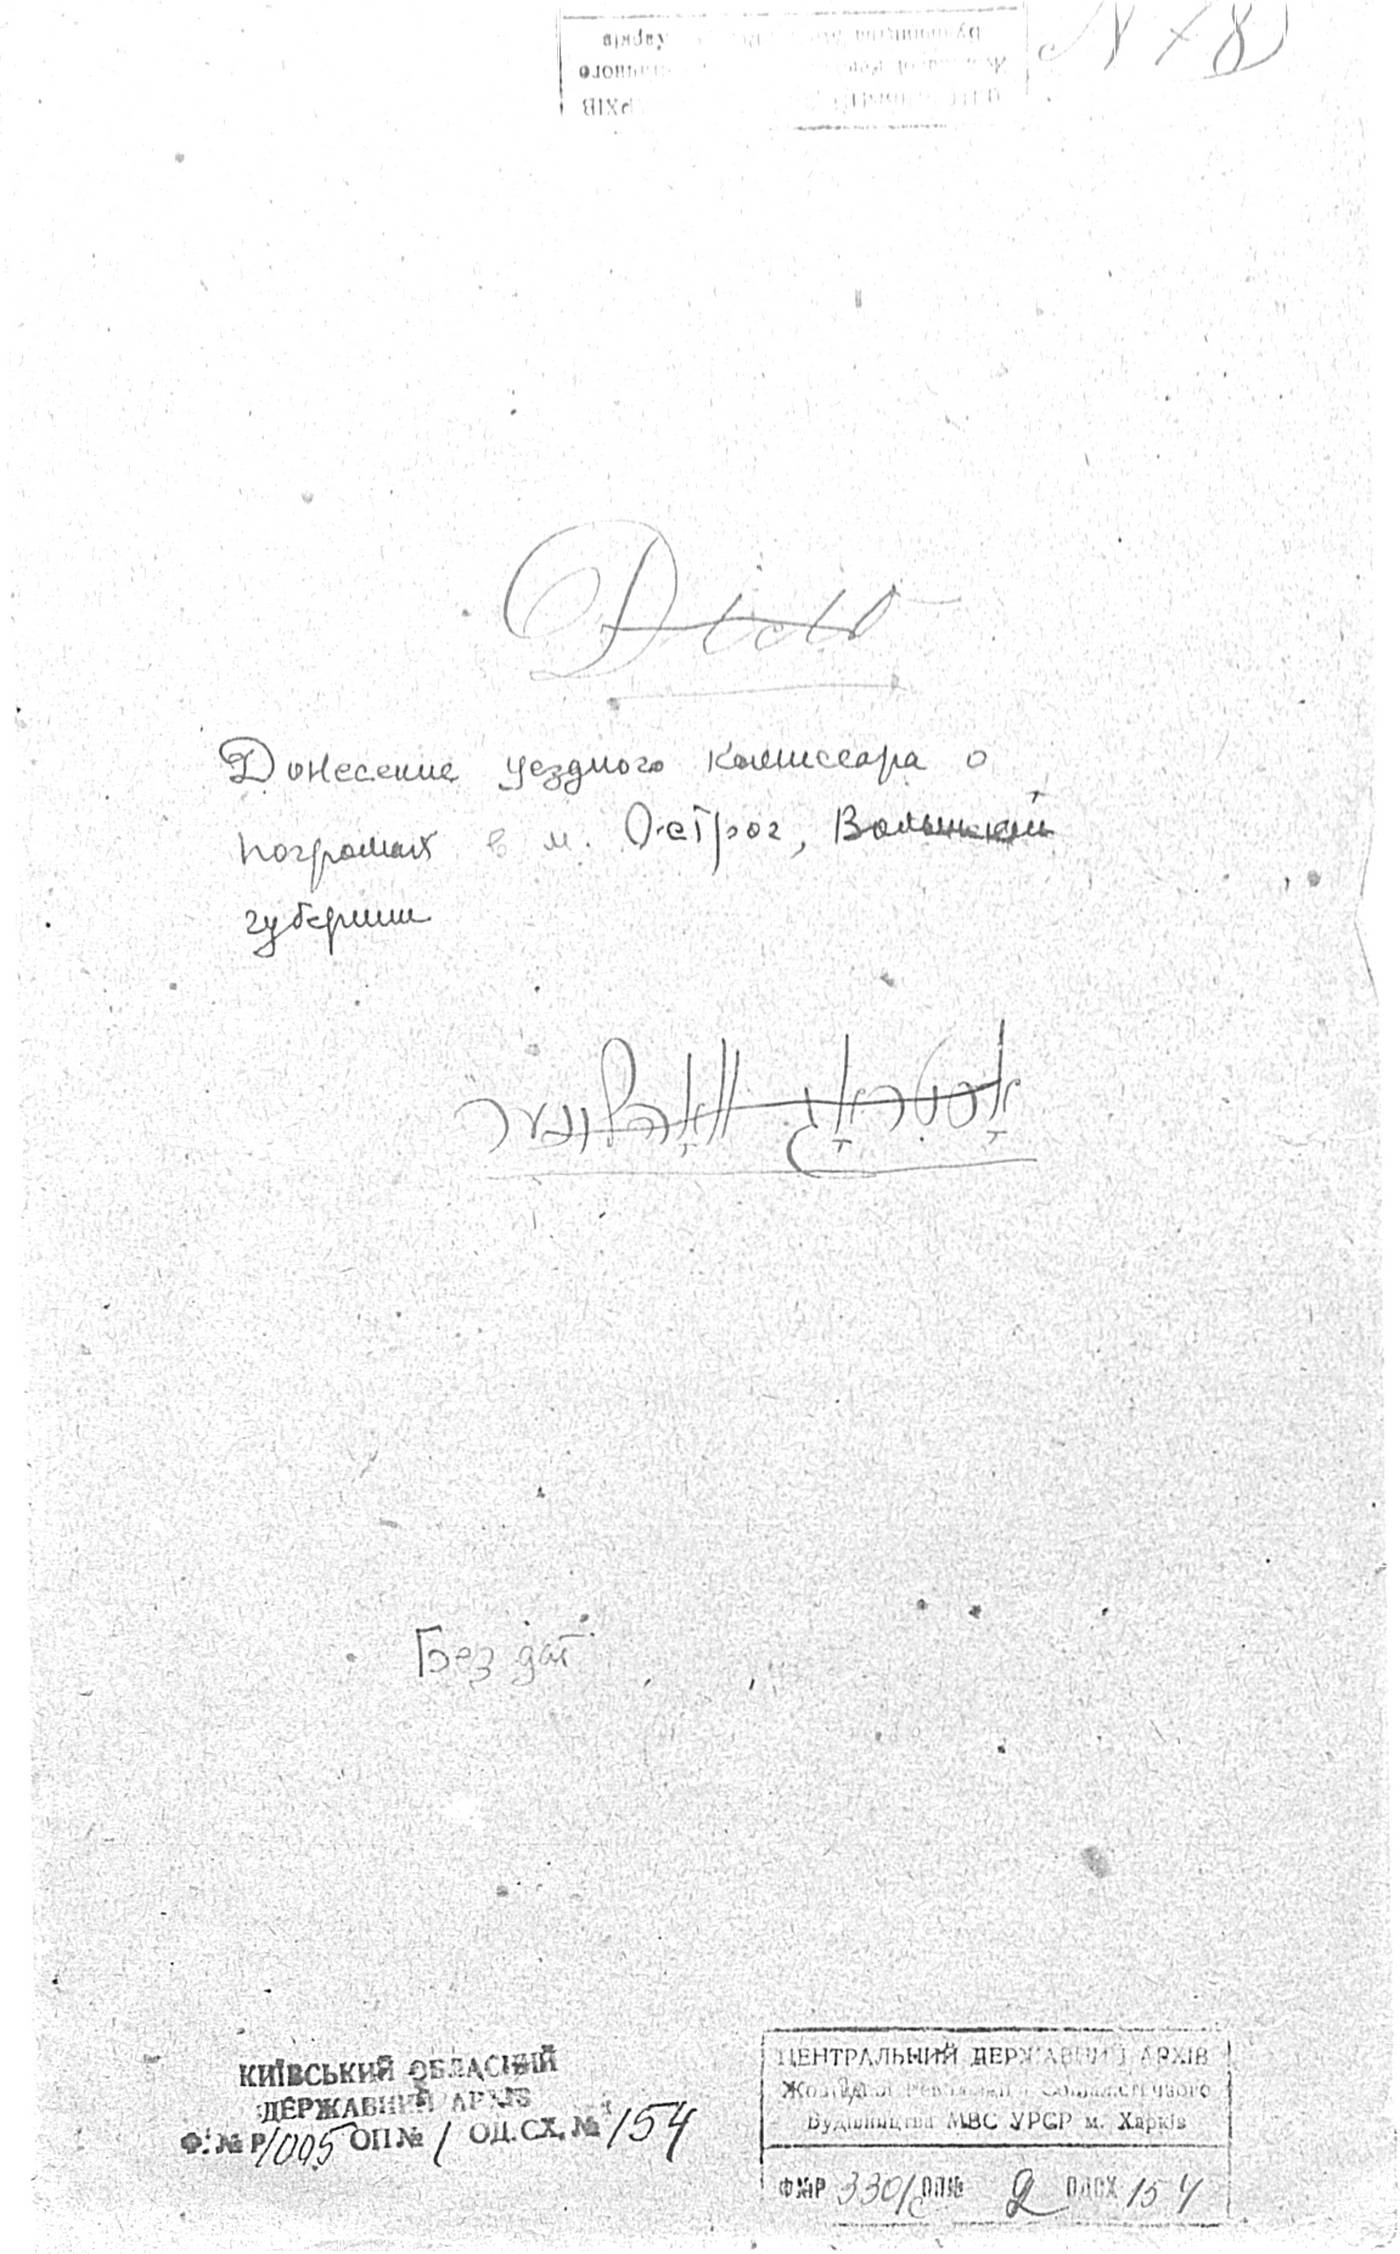 N 78
Діло
Донесение уездного комиссара о
погромах в м. Острог, Волынской
губернии
אָסטראָג
Без дат
КИЇВСЬКИЙ ОБЛАСНИЙ
ДЕРЖАВНИЙ АРХІВ
Ф. № Р/1005 ОП № 1 ОД. СХ. № 154
ЦЕНТРАЛЬНИЙ ДЕРЖАВНИЙ АРХІВ
Жовтневої Революції і Соціалістичного
Будівництва МВС УРСР м. Харків
Ф№Р 3301/с ОП№ 2 ОДСХ 154